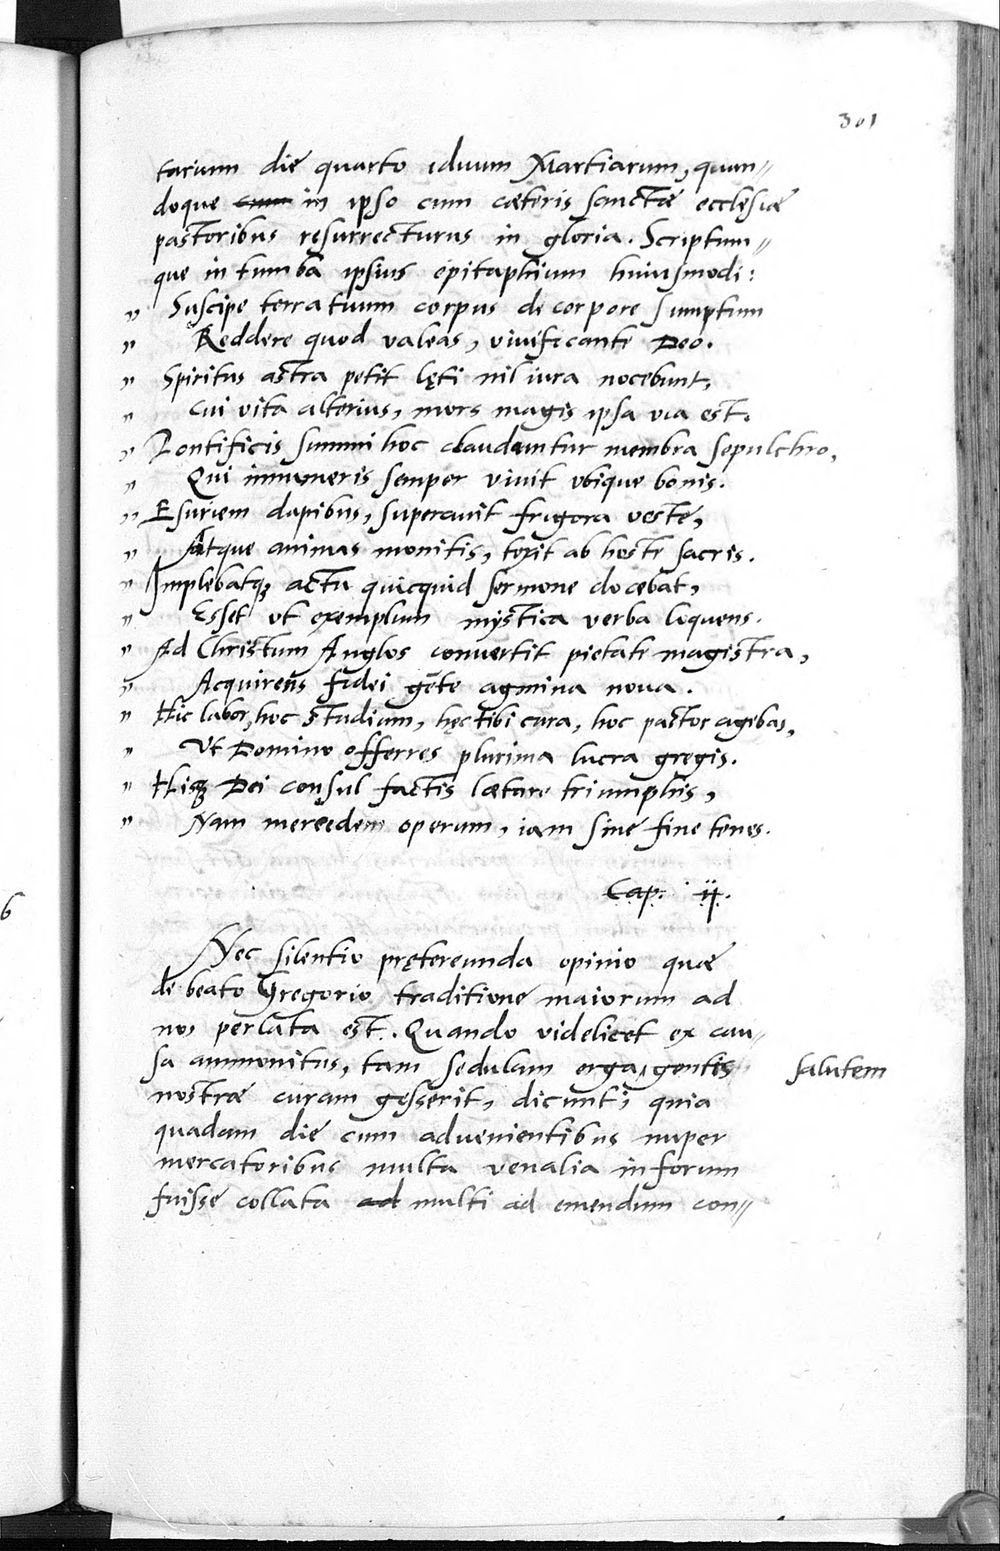 301
tarium die quarto iduum Martiarum, quan„
doque cum in ipso cum cæteris sanctæ ecclesiæ
pastoribus resurrecturus in gloria. Scriptum„
que in tumba ipsius epitaphium huiusmodi:
„ Suscipe terra tuum corpus de corpore sumptum
„ Reddere quod valeas, vivificante Deo.
„ Spiritus astra petit lęti nil iura nocebunt,
„ Cui vita alterius, mors magis ipsa via est.
„ Pontificis summi hoc clauduntur membra sepulchro,
„ Qui innumeris semper vivit ubique bonis.
„ Esuriem dapibus, superavit frigora veste,
„ Atque animas monitis, texit ab hoste sacris.
„ Implebatq; actu quicquid sermone docebat,
„ Esset ut exemplum mystica verba loquens.
„ Ad Christum Anglos convertit pietate magistra,
„ Acquirens fidei gēte agmina nova.
„ Hic labor, hoc studium, hęc tibi cura, hoc pastor agebas,
„ Ut Domino offerres plurima lucra gregis.
„ Hisq; Dei consul factis lætare triumphis,
„ Nam mercedem operum, iam sine fine tenes.
Cap. ij.
6
Nec silentio prętereunda opinio quæ
de beato Gregorio traditione maiorum ad
nos perlata est. Quando videlicet ex cau„
sa ammonitus, tam sedulam erga gentis salutem
nostræ curam gesserit, dicunt, quia
quadam die cum advenientibus nuper
mercatoribus multa venalia in forum
fuisse collata ad multi ad emendum con„